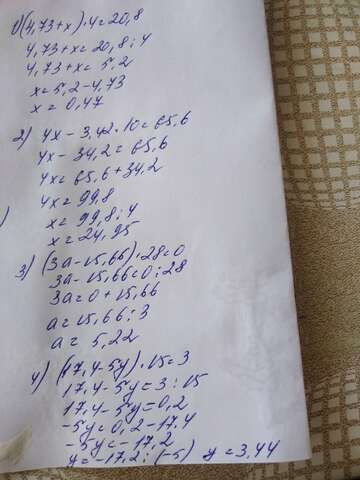 1) (4,73+x)·4=20,8
4,73+x=20,8:4
4,73+x=5,2
x=5,2-4,73
x=0,47
2) 4x-3,42·10=65,6
4x-34,2=65,6
4x=65,6+34,2
4x=99,8
x=99,8:4
x=24,95
)
3) (3a-15,66)·28=0
3a-15,66=0:28
3a=0+15,66
a=15,66:3
a=5,22
4) (17,4-5y)·15=3
17,4-5y=3:15
17,4-5y=0,2
-5y=0,2-17,4
-5y=-17,2
y=-17,2:(-5) y=3,44